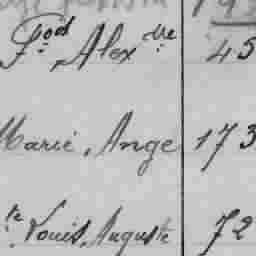 Fod Alexdre 45
Marie, Ange 173
te Louis, Auguste 72